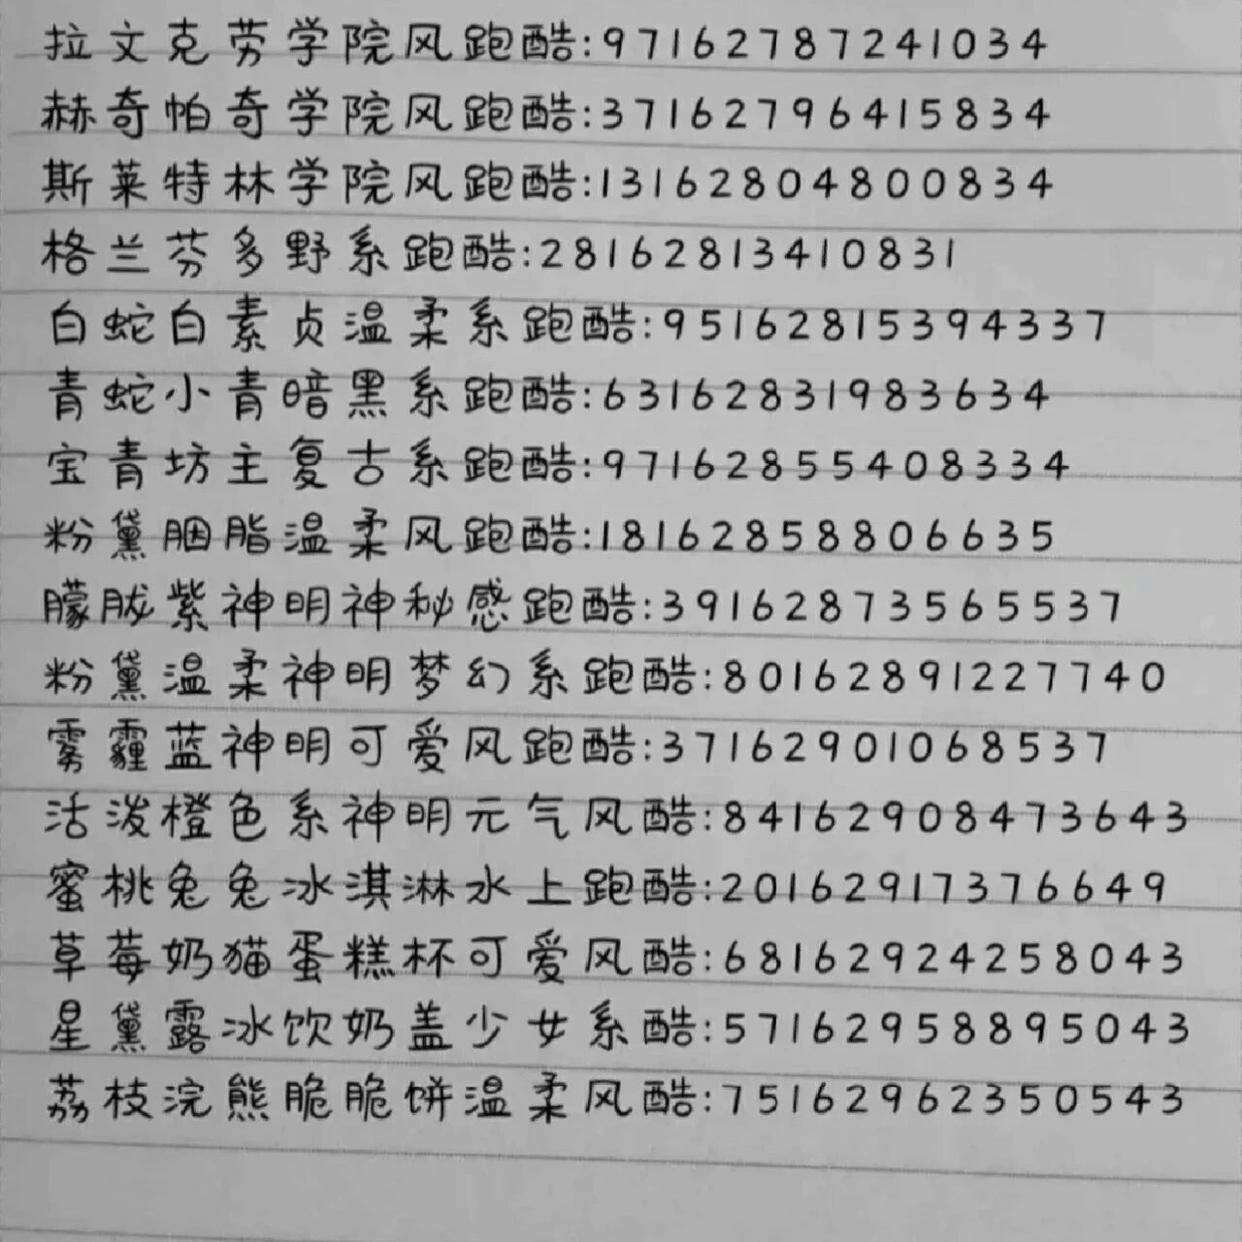 拉文克劳学院风跑酷:97162787241034
赫奇帕奇学院风跑酷:37162796415834
斯莱特林学院风跑酷:13162804800834
格兰芬多野系跑酷:28162813410831
白蛇白素贞温柔系跑酷:95162815394337
青蛇小青暗黑系跑酷:63162831983634
宝青坊主复古系跑酷:97162855408334
粉黛胭脂温柔风跑酷:18162858806635
朦胧紫神明神秘感跑酷:39162873565537
粉黛温柔神明梦幻系跑酷:80162891227740
雾霾蓝神明可爱风跑酷:37162901068537
活泼橙色系神明元气风酷:84162908473643
蜜桃兔兔冰淇淋水上跑酷:20162917376649
草莓奶猫蛋糕杯可爱风酷:68162924258043
星黛露冰饮奶盖少女系酷:57162958895043
荔枝浣熊脆脆饼温柔风酷:75162962350543